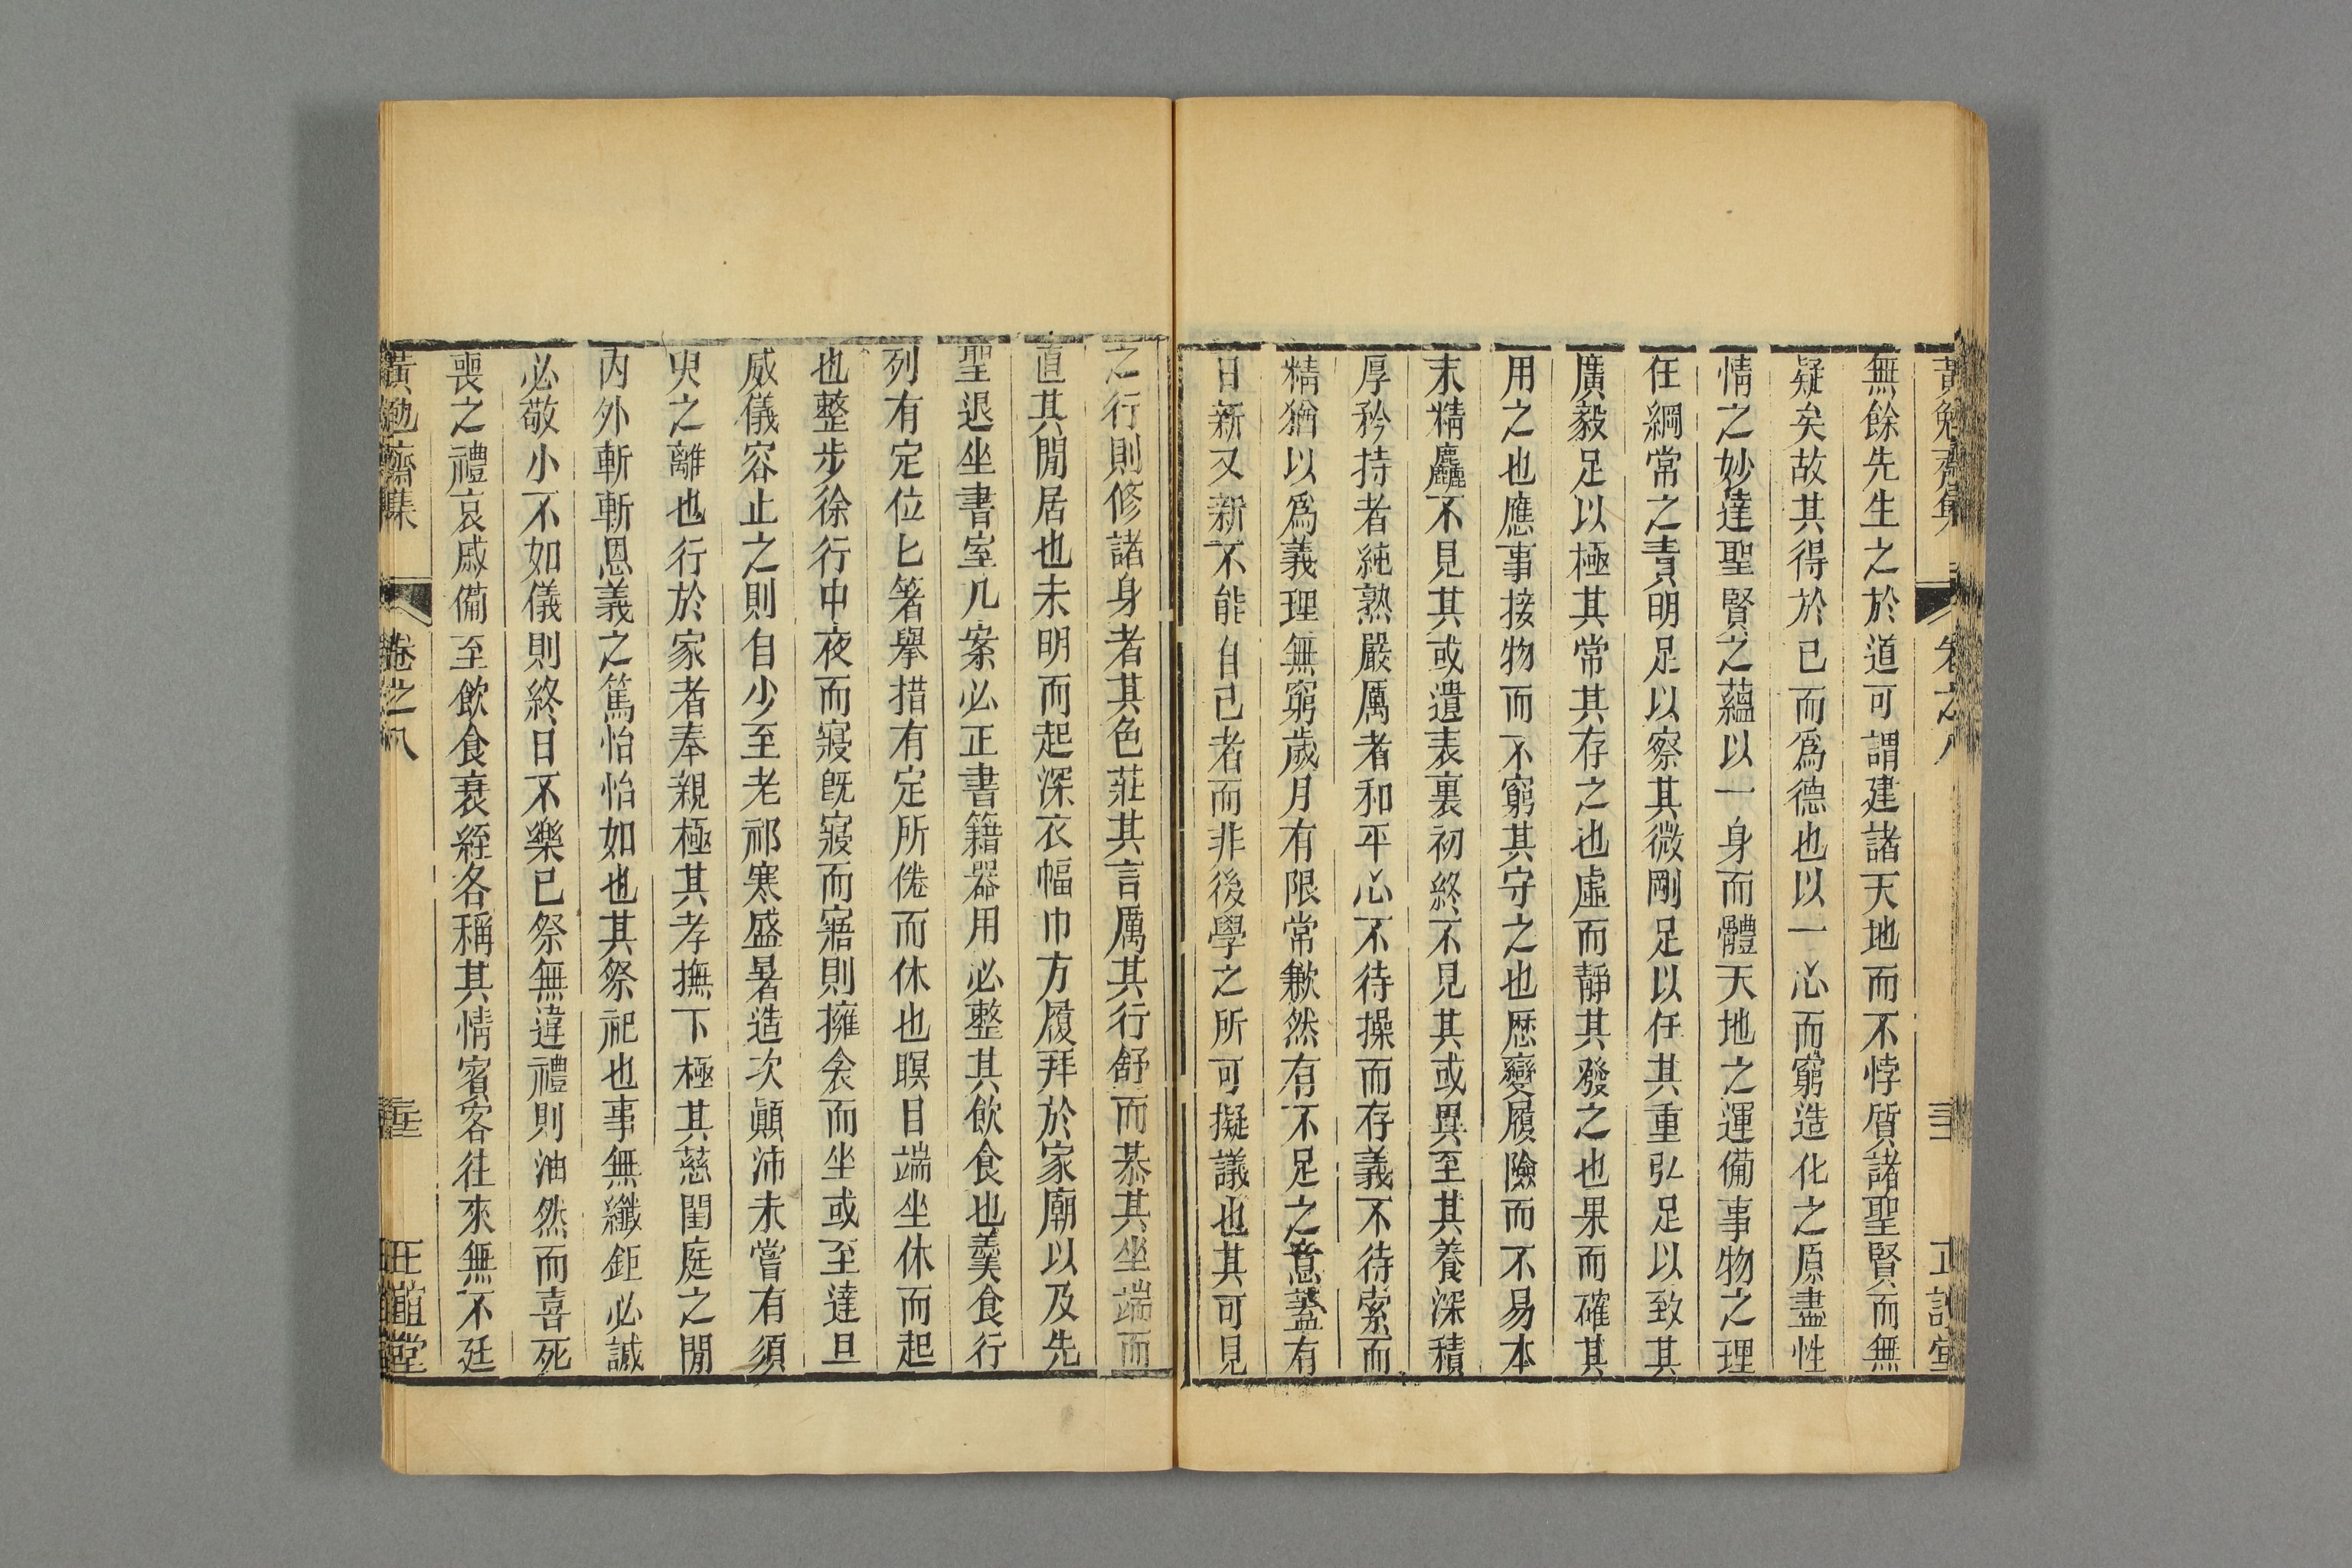 黃勉齋集 卷之八 三 正誼堂
無餘先生之於道可謂建諸天地而不悖質諸聖賢而無
疑矣故其得於已而爲德也以一心而窮造化之原盡性
情之妙達聖賢之蘊以一身而體天地之運備事物之理
任綱常之責明足以察其微剛足以任其重弘足以致其
廣毅足以極其常其存之也虛而靜其發之也果而確其
用之也應事接物而不窮其守之也歷變履險而不易本
末精麤不見其或遺表裏初終不見其或異至其養深積
厚矜持者純熟嚴厲者和平心不待操而存義不待索而
精猶以爲義理無窮歲月有限常歉然有不足之意蓋有
日新又新不能自已者而非後學之所可擬議也其可見
之行則修諸身者其色莊其言厲其行舒而恭其坐端而
直其閒居也未明而起深衣幅巾方履拜於家廟以及先
聖退坐書室几案必正書籍器用必整其飲食也羹食行
列有定位匕箸舉措有定所倦而休也瞑目端坐休而起
也整步徐行中夜而寢旣寢而寤則擁衾而坐或至達旦
威儀容止之則自少至老祁寒盛暑造次顚沛未嘗有須
臾之離也行於家者奉親極其孝撫下極其慈閨庭之閒
內外斬斬恩義之篤怡怡如也其祭祀也事無纖鉅必誠
必敬小不如儀則終日不樂已祭無違禮則油然而喜死
喪之禮哀戚備至飲食衰絰各稱其情賓客往來無不延
黃勉齋集 卷之八 正誼堂